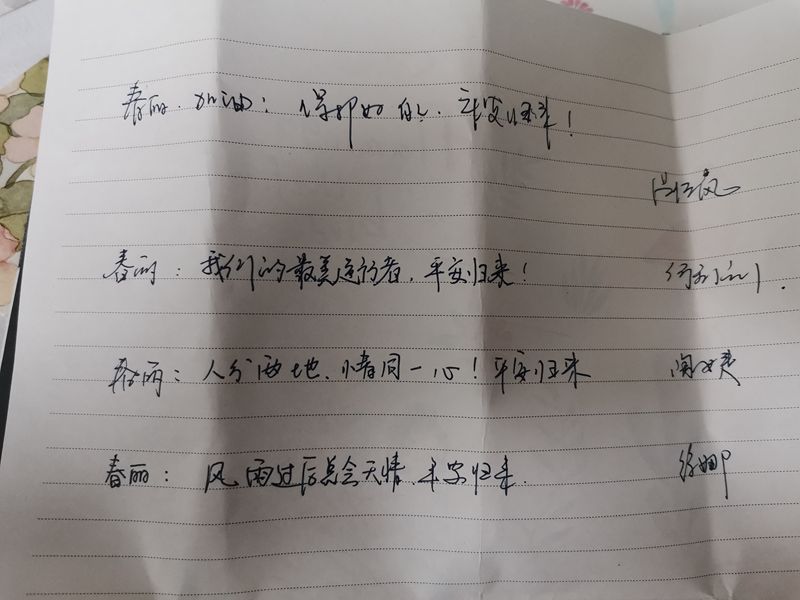 春丽.加油: 保护好自己.平安归来!
春丽: 我们的最美逆行者.平安归来!
春丽: 人分两地.情同一心!平安归来
春丽: 风雨过后总会天情.平安归来.
徐娜